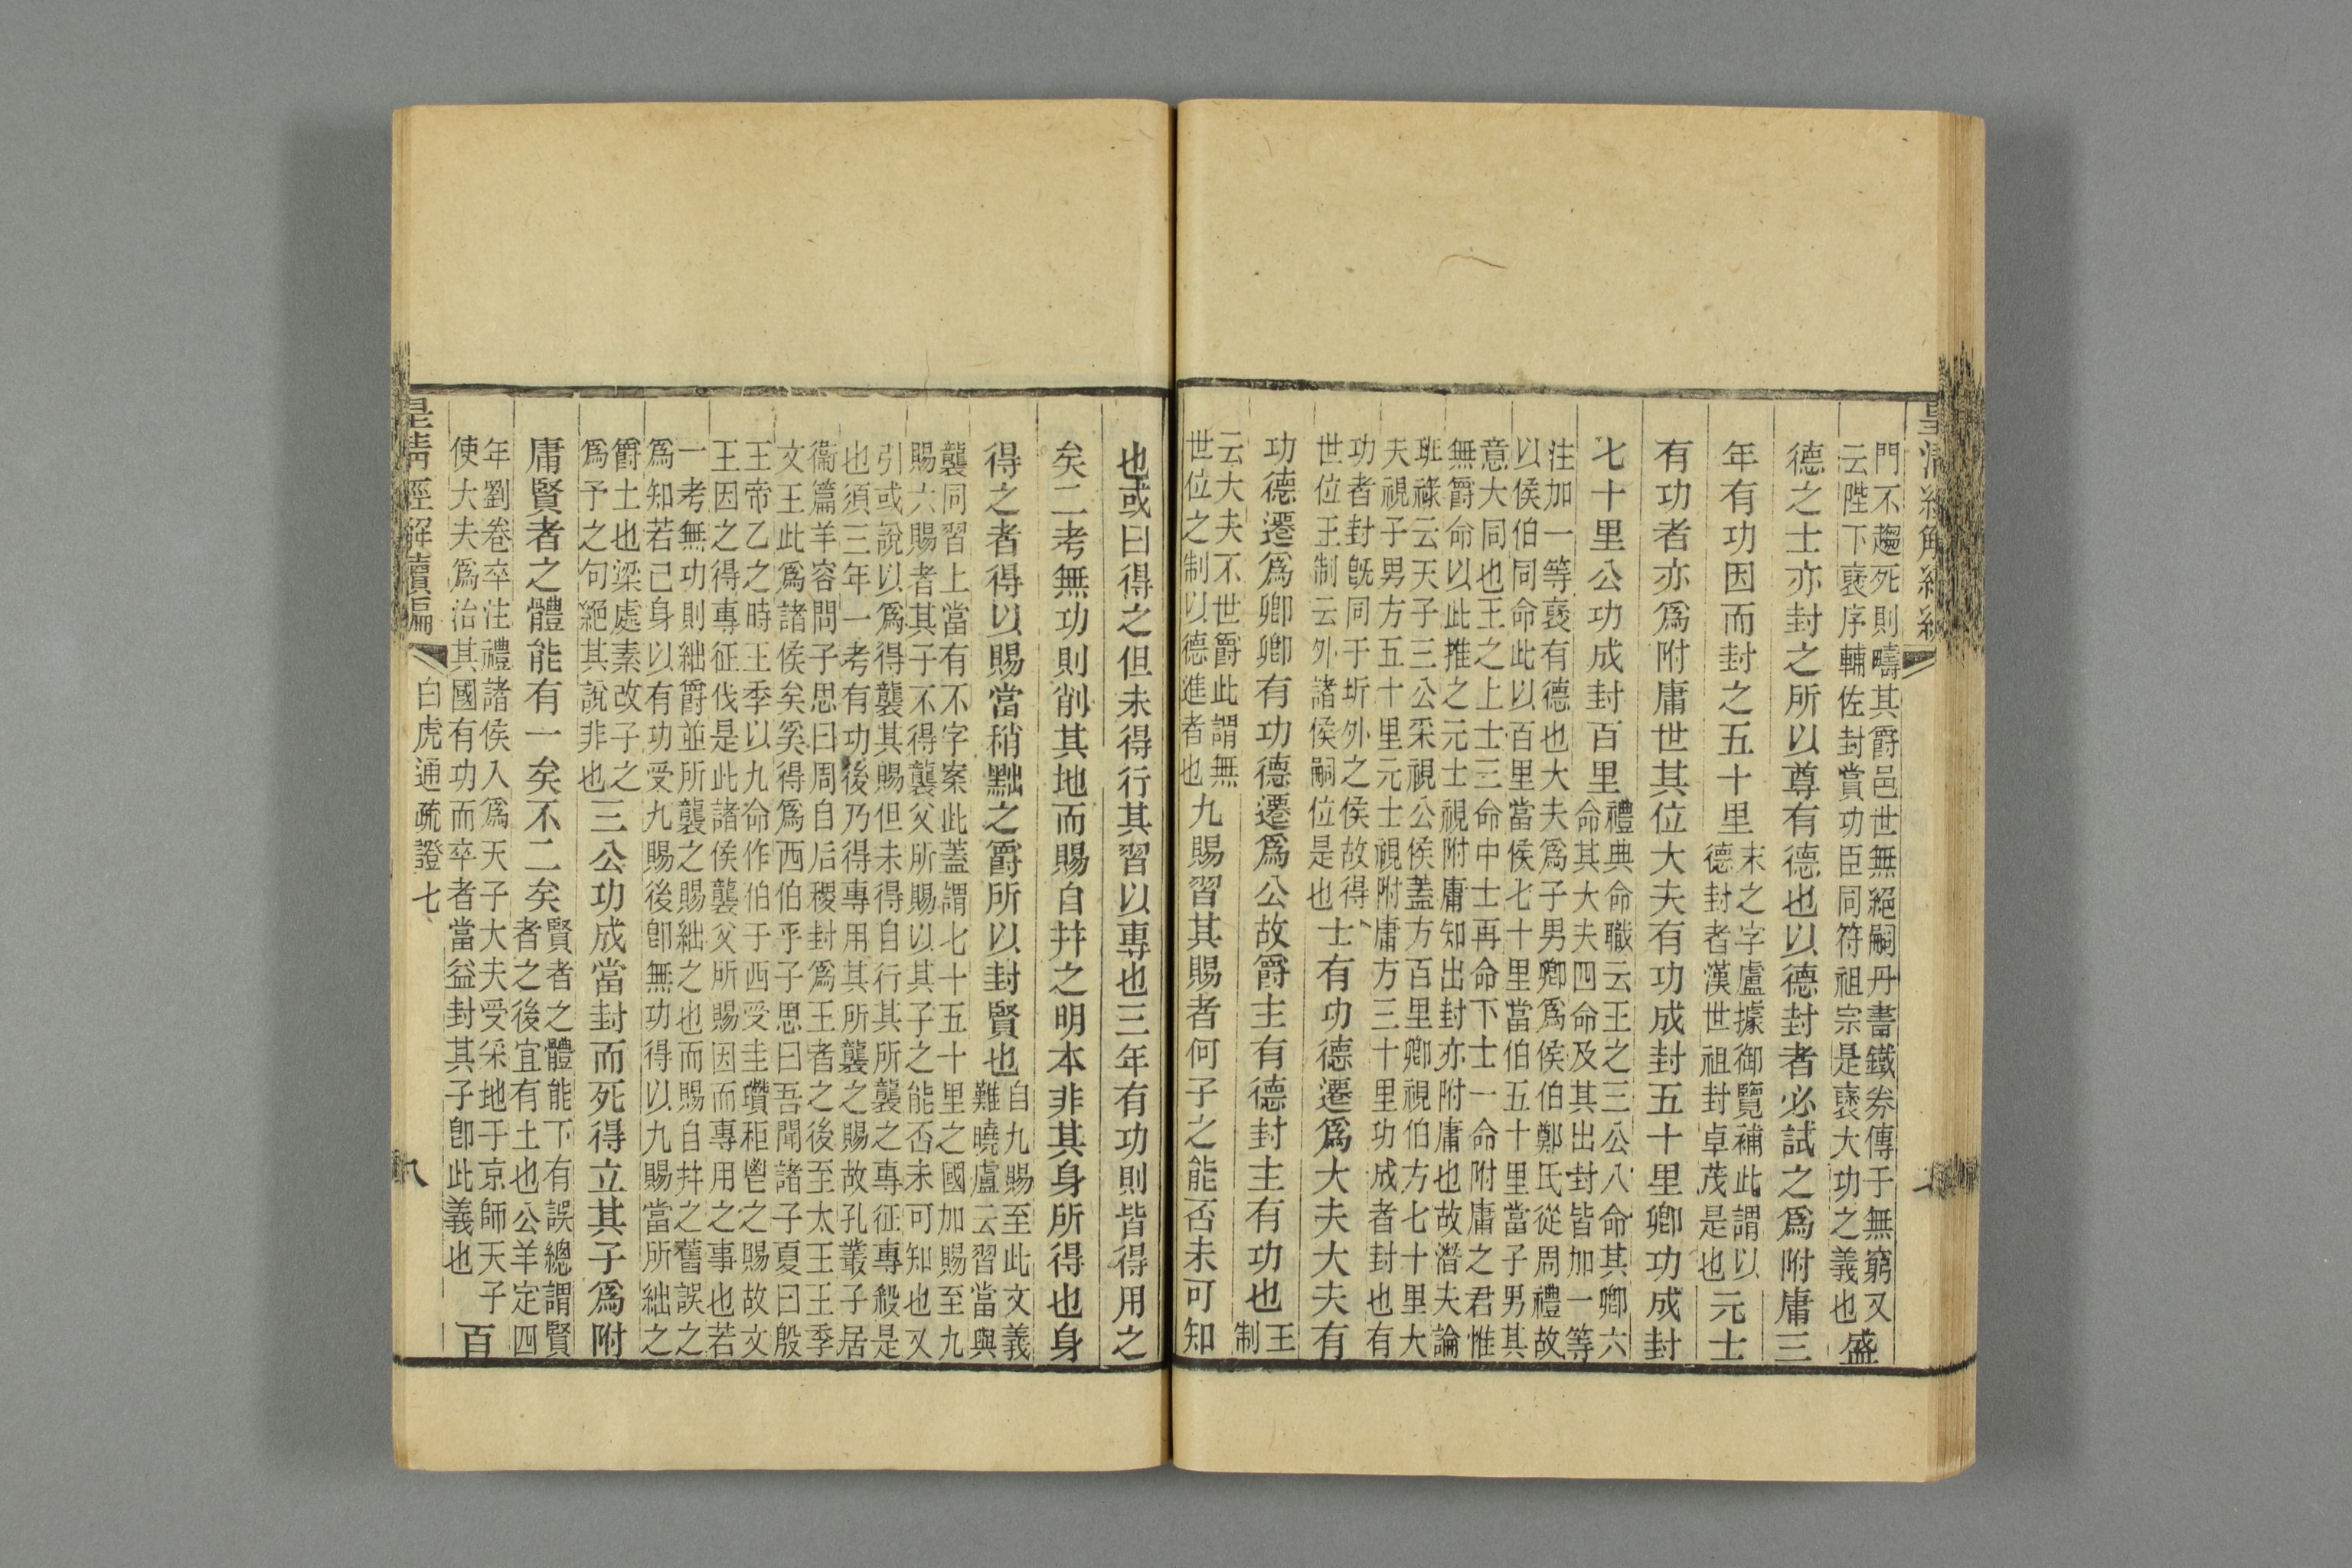 門不趨死則疇其爵邑世無絕嗣丹書鐵券傳于無窮又
云陛下裦序輔佐封賞功臣同符祖宗是裦大功之義也
盛
德之士亦封之所以尊有德也以德封者必試之爲附庸三
年有功因而封之五十里
末之字盧據御覽補此謂以
德封者漢世祖封卓茂是也
元士
有功者亦爲附庸世其位大夫有功成封五十里卿功成封
七十里公功成封百里
禮典命職云王之三公八命其卿六
命其大夫四命及其出封皆加一等
注加一等裦有德也大夫爲子男卿爲侯伯鄭氏從周禮故
以侯伯同命此以百里當侯七十里當伯五十里當子男其
意大同也王之上士三命中士再命下士一命附庸之君惟
無爵命以此推之元士視附庸知出封亦附庸也故潛夫論
班祿云天子三公采視公侯蓋方百里卿視伯方七十里大
夫視子男方五十里元士視附庸方三十里功成者封也有
功者封旣同于圻外之侯故得
世位王制云外諸侯嗣位是也
士有功德遷爲大夫大夫有
功德遷爲卿卿有功德遷爲公故爵主有德封主有功也
王
制
云大夫不世爵此謂無
世位之制以德進者也
九賜習其賜者何子之能否未可知
也或曰得之但未得行其習以專也三年有功則皆得用之
矣二考無功則削其地而賜自幷之明本非其身所得也身
得之者得以賜當稍黜之爵所以封賢也
自九賜至此文義
難曉盧云習當與
襲同習上當有不字案此蓋謂七十五十里之國加賜至九
賜六賜者其子不得襲父所賜以其子之能否未可知也又
引或說以爲得襲其賜但未得自行其所襲之專征專殺是
也須三年一考有功後乃得專用其所襲之賜故孔叢子居
衞篇羊容問子思曰周自后稷封爲王者之後至太王王季
文王此爲諸侯矣奚得爲西伯乎子思曰吾聞諸子夏曰殷
王帝乙之時王季以九命作伯于西受圭瓚秬鬯之賜故文
王因之得專征伐是此諸侯襲父所賜因而專用之事也若
一考無功則絀爵並所襲之賜絀之也而賜自幷之舊誤之
爲知若己身以有功受九賜後卽無功得以九賜當所絀之
爵土也梁處素改子之
爲予之句絕其說非也
三公功成當封而死得立其子爲附
庸賢者之體能有一矣不二矣
賢者之體能下有誤總謂賢
者之後宜有土也公羊定四
年劉卷卒注禮諸侯入爲天子大夫受采地于京師天子
使大夫爲治其國有功而卒者當益封其子卽此義也
百
皇清經解續編
白虎通疏證七
八